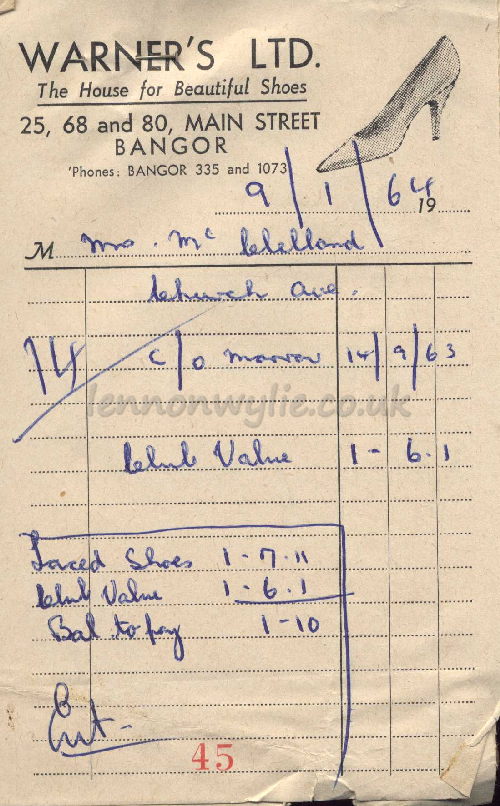 WARNER'S LTD.
The House for Beautiful Shoes
25, 68 and 80, MAIN STREET
BANGOR
'Phones: BANGOR 335 and 1073
9/1/64
19
M Mrs. Mc Clelland
Church Ave.
14 c/o Morrow 14/9/63
lennonwylie.co.uk
Club Value 1 - 6.1
Laced Shoes 1-7.11
Club Value 1-6.1
Bal to pay 1-10
Ent-
45